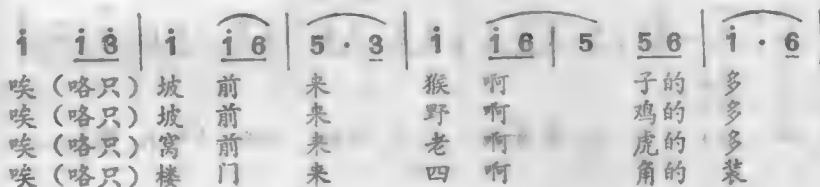 i̇ i̇ 3̇ | i̇ i̇ 6 | 5 · 3 | i̇ i̇ 6 | 5 5 6 | i̇ · 6
唉（咯只）坡 前 来 猴 啊 子的 多
唉（咯只）坡 前 来 野 啊 鸡的 多
唉（咯只）窝 前 来 老 啊 虎的 多
唉（咯只）楼 门 来 四 啊 角的 装